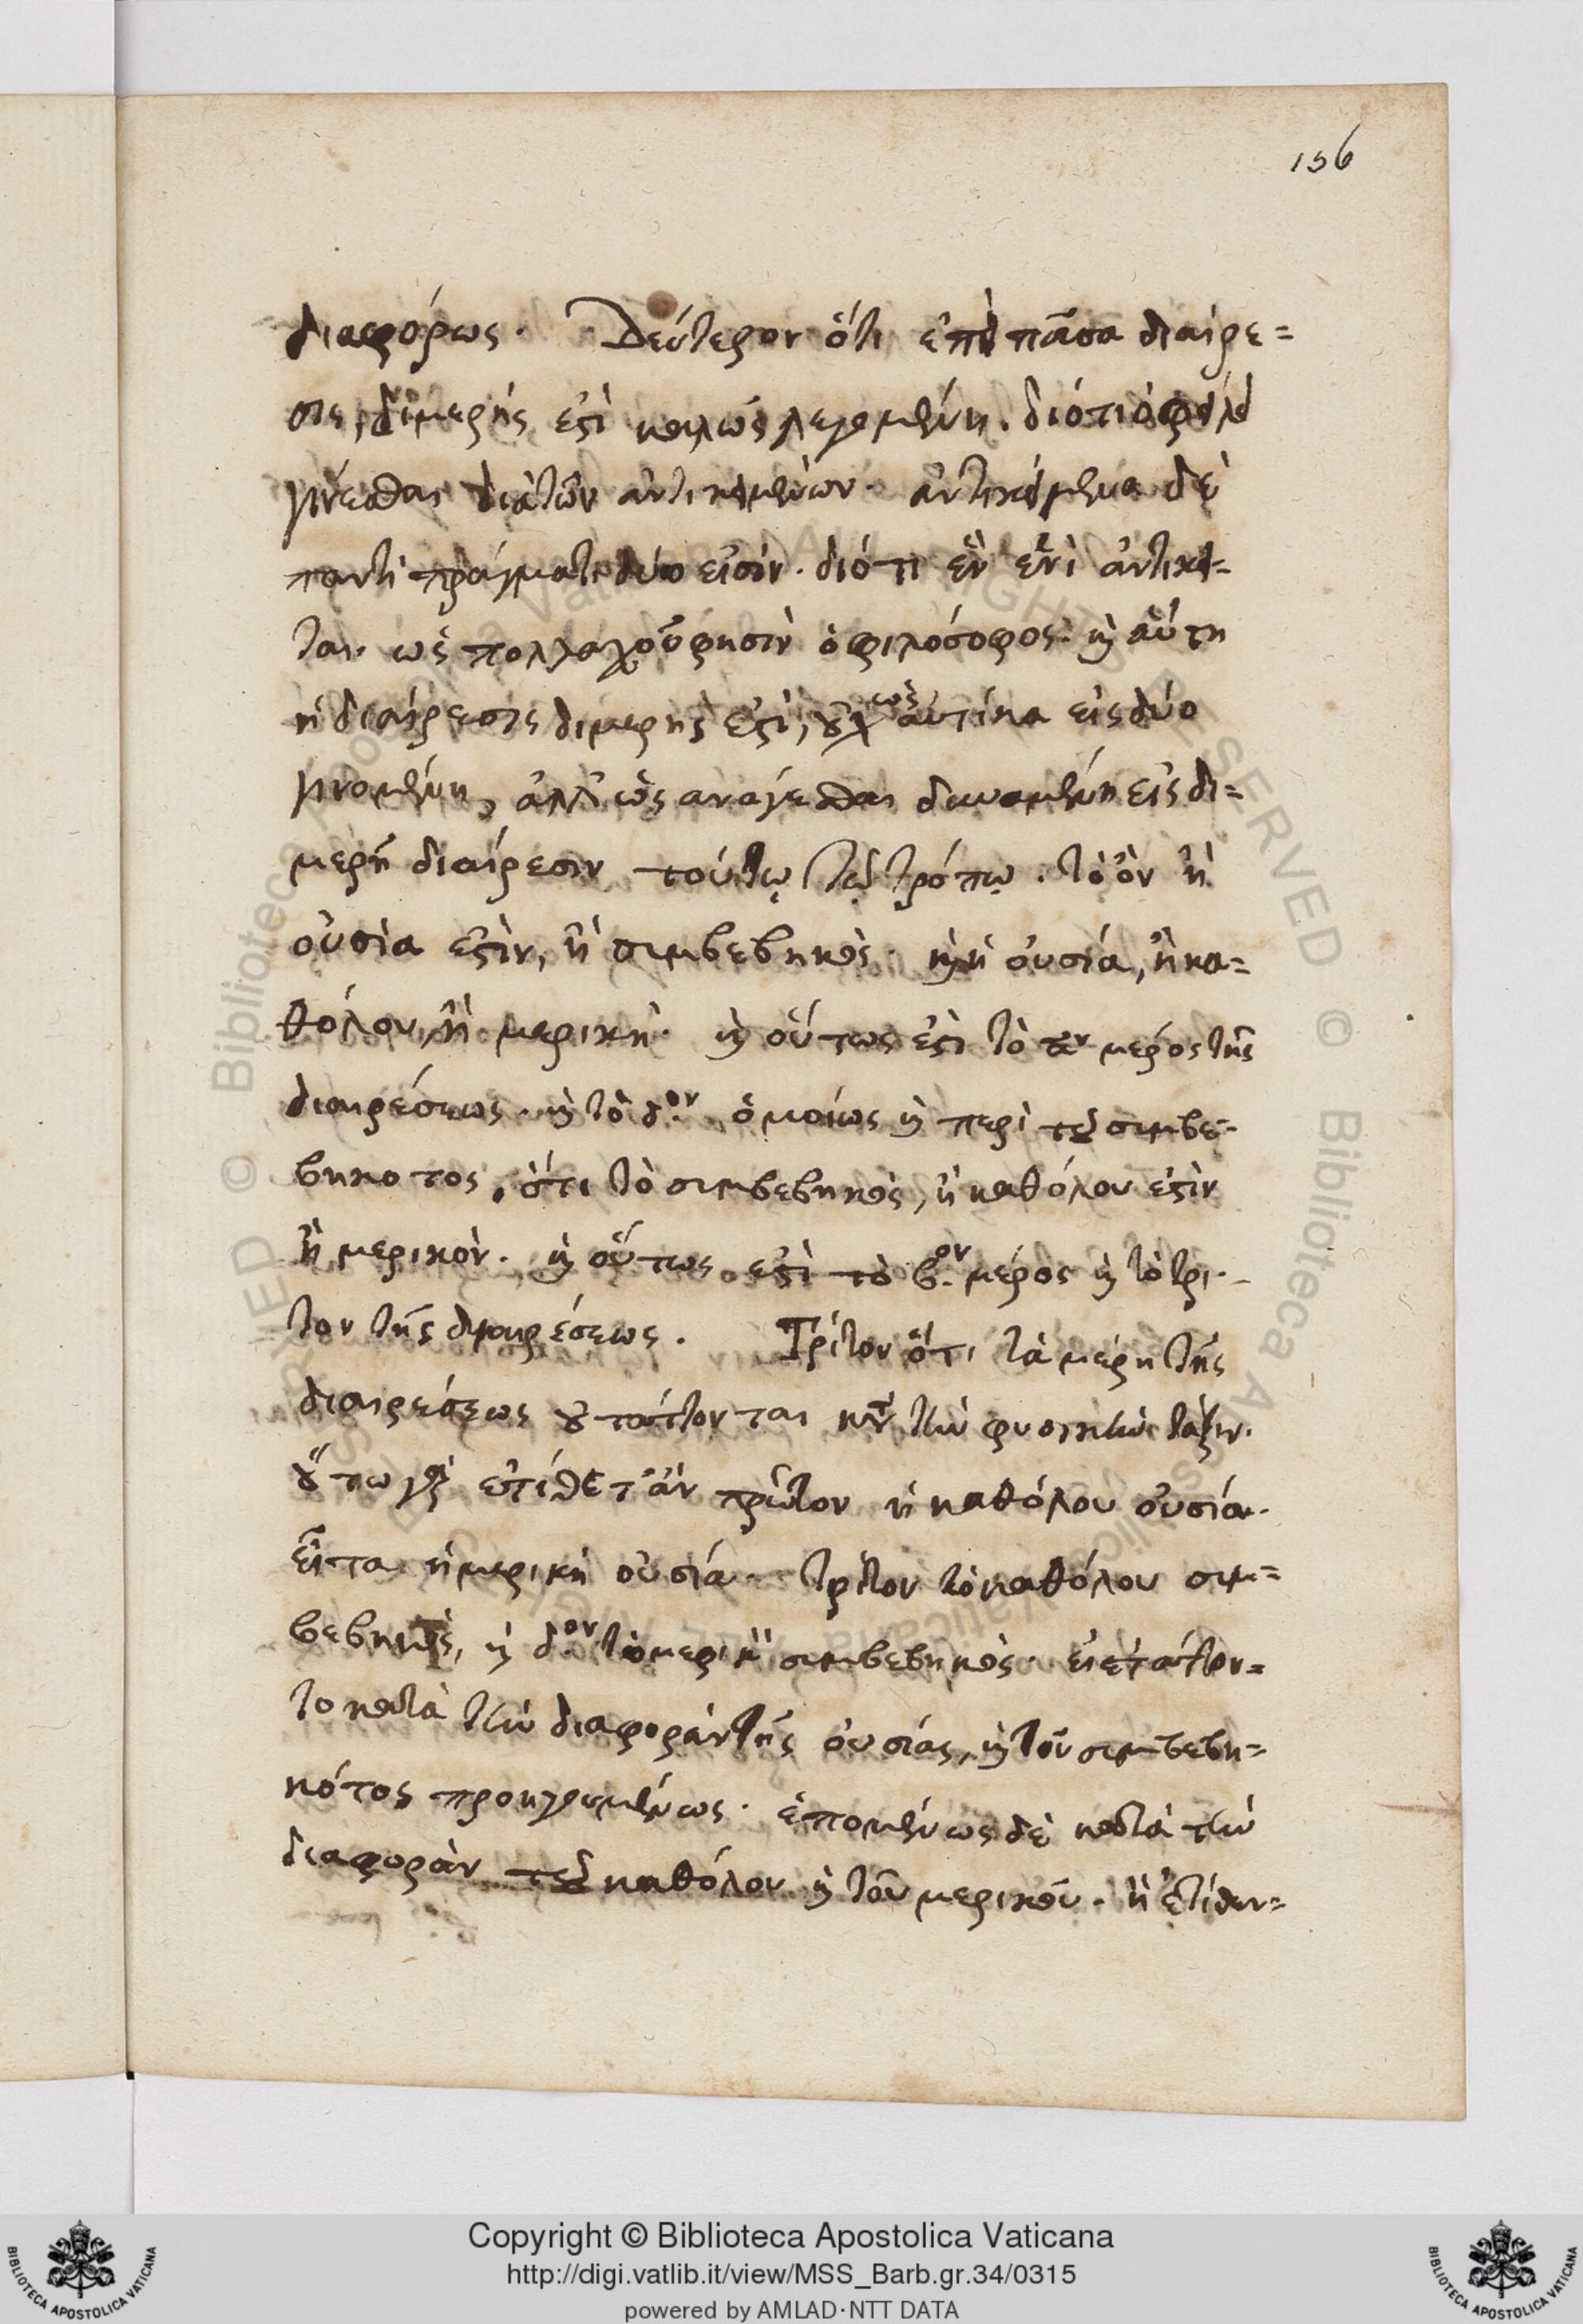 156
διαφόρως. Δεύτερον ὅτι ἐπεὶ πᾶσα διαίρε=
σις, διμερής ἐστὶ καλῶς λεγομένη. διότι ὀφείλει
γίνεσθαι διὰ τῶν ἀντικειμένων. ἀντικείμενα δὲ
παντὶ πράγματι δύο εἰσίν. διότι ἓν ἑνὶ ἀντικεί-
ται. ὡς πολλαχοῦ φησὶν ὁ φιλόσοφος. καὶ αὕτη
ἡ διαίρεσις διμερὴς ἐστὶ, οὐχ ὡς αὐτίκα εἰς δύο
γινομένη, ἀλλ' ὡς ἀνάγεσθαι δυναμένη εἰς δι=
μερῆ διαίρεσιν τούτῳ τῷ τρόπῳ. τὸ ὂν ἢ
οὐσία ἐστὶν, ἢ συμβεβηκὸς. καὶ ἡ οὐσία, ἢ κα=
θόλου, ἢ μερικὴ. καὶ οὕτως ἐστὶ τὸ αον μέρος τῆς
διαιρέσεως. καὶ τὸ δ.ον ὁμοίως καὶ περὶ τοῦ συμβε-
βηκοτος, ὅτι τὸ συμβεβηκὸς, ἢ καθόλου ἐστὶν
ἢ μερικὸν. καὶ οὕτως ἐστὶ τὸ β.ον μέρος καὶ τὸ τρί-
τον τῆς διαιρέσεως. Τρίτον ὅτι τὰ μέρη τῆς
διαιρέσεως οὐ τάττονται κατὰ τὴν φυσικὴν τάξιν.
οὕτω γὰρ ἐτίθετ' ἂν πρῶτον ἡ καθόλου οὐσία.
εἶτα ἡ μερικὴ οὐσία. τρίτον τὸ καθόλου συμ=
βεβηκὸς, καὶ δ.ον τὸ μερικὸν συμβεβηκὸς. εἰ ἐτάττον=
το κατὰ τὴν διαφορὰν τῆς οὐσίας, καὶ τοῦ συμβεβη=
κότος προηγουμένως. ἑπομένως δὲ κατὰ τὴν
διαφορὰν τοῦ καθόλου καὶ τοῦ μερικοῦ. ἢ ἐτίθεν=
Copyright © Biblioteca Apostolica Vaticana
http://digi.vatlib.it/view/MSS_Barb.gr.34/0315
powered by AMLAD·NTT DATA